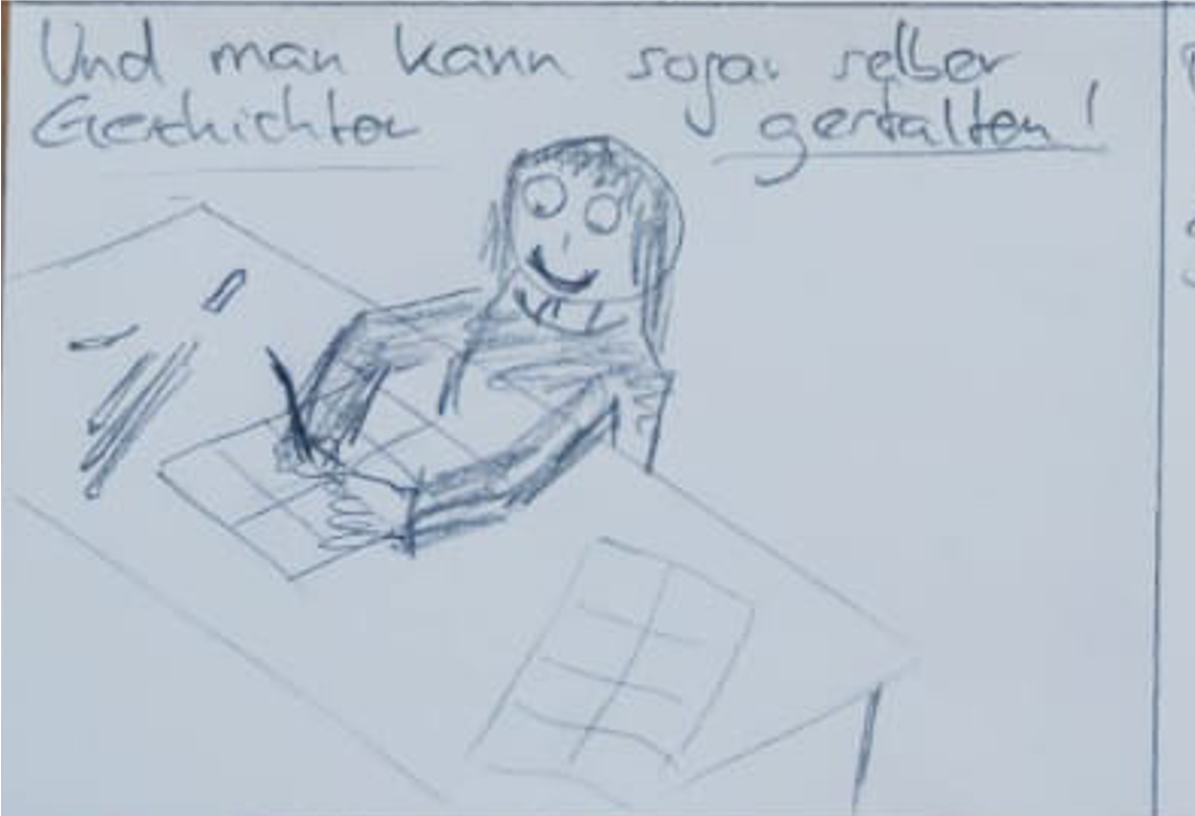 Und man kann sogar selber
Geschichten gestalten!